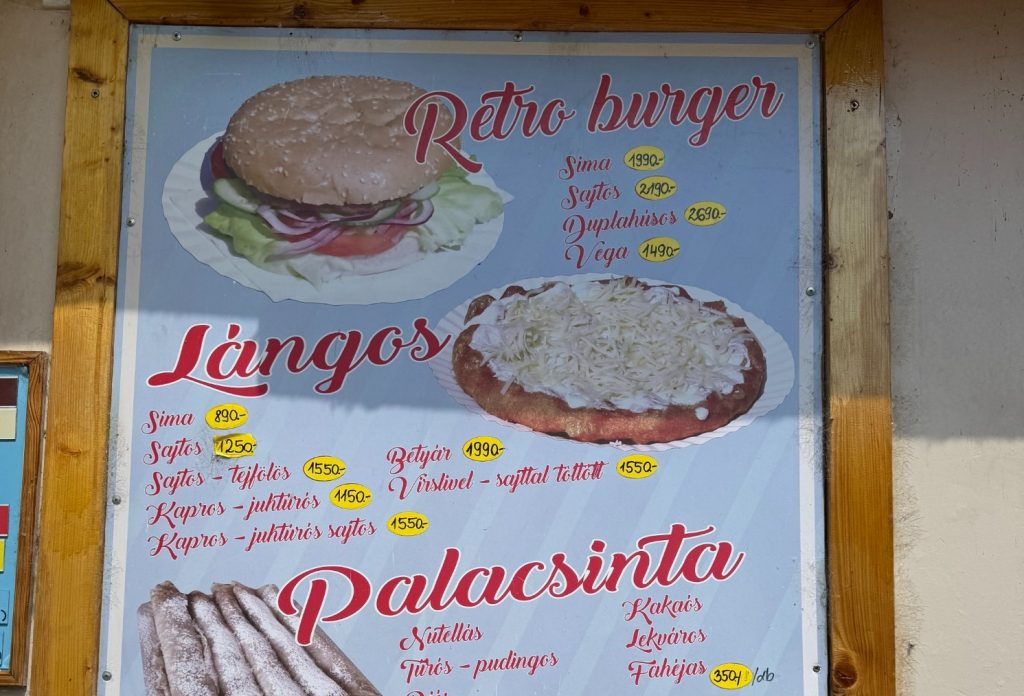 Retro burger
Sima 1990.-
Sajtos 2190.-
Duplahúsos 2690.-
Vega 1490.-
Lángos
Sima 890.-
Sajtos 1250.-
Sajtos - tejfölös 1550.-
Kapros - juhtúrós 1150.-
Kapros - juhtúrós sajtos 1550.-
Betyár 1990.-
Virslivel - sajttal töltött 1550.-
Palacsinta
Nutellás
Túrós - pudingos
Kakaós
Lekváros
Fahéjas 350.- /db